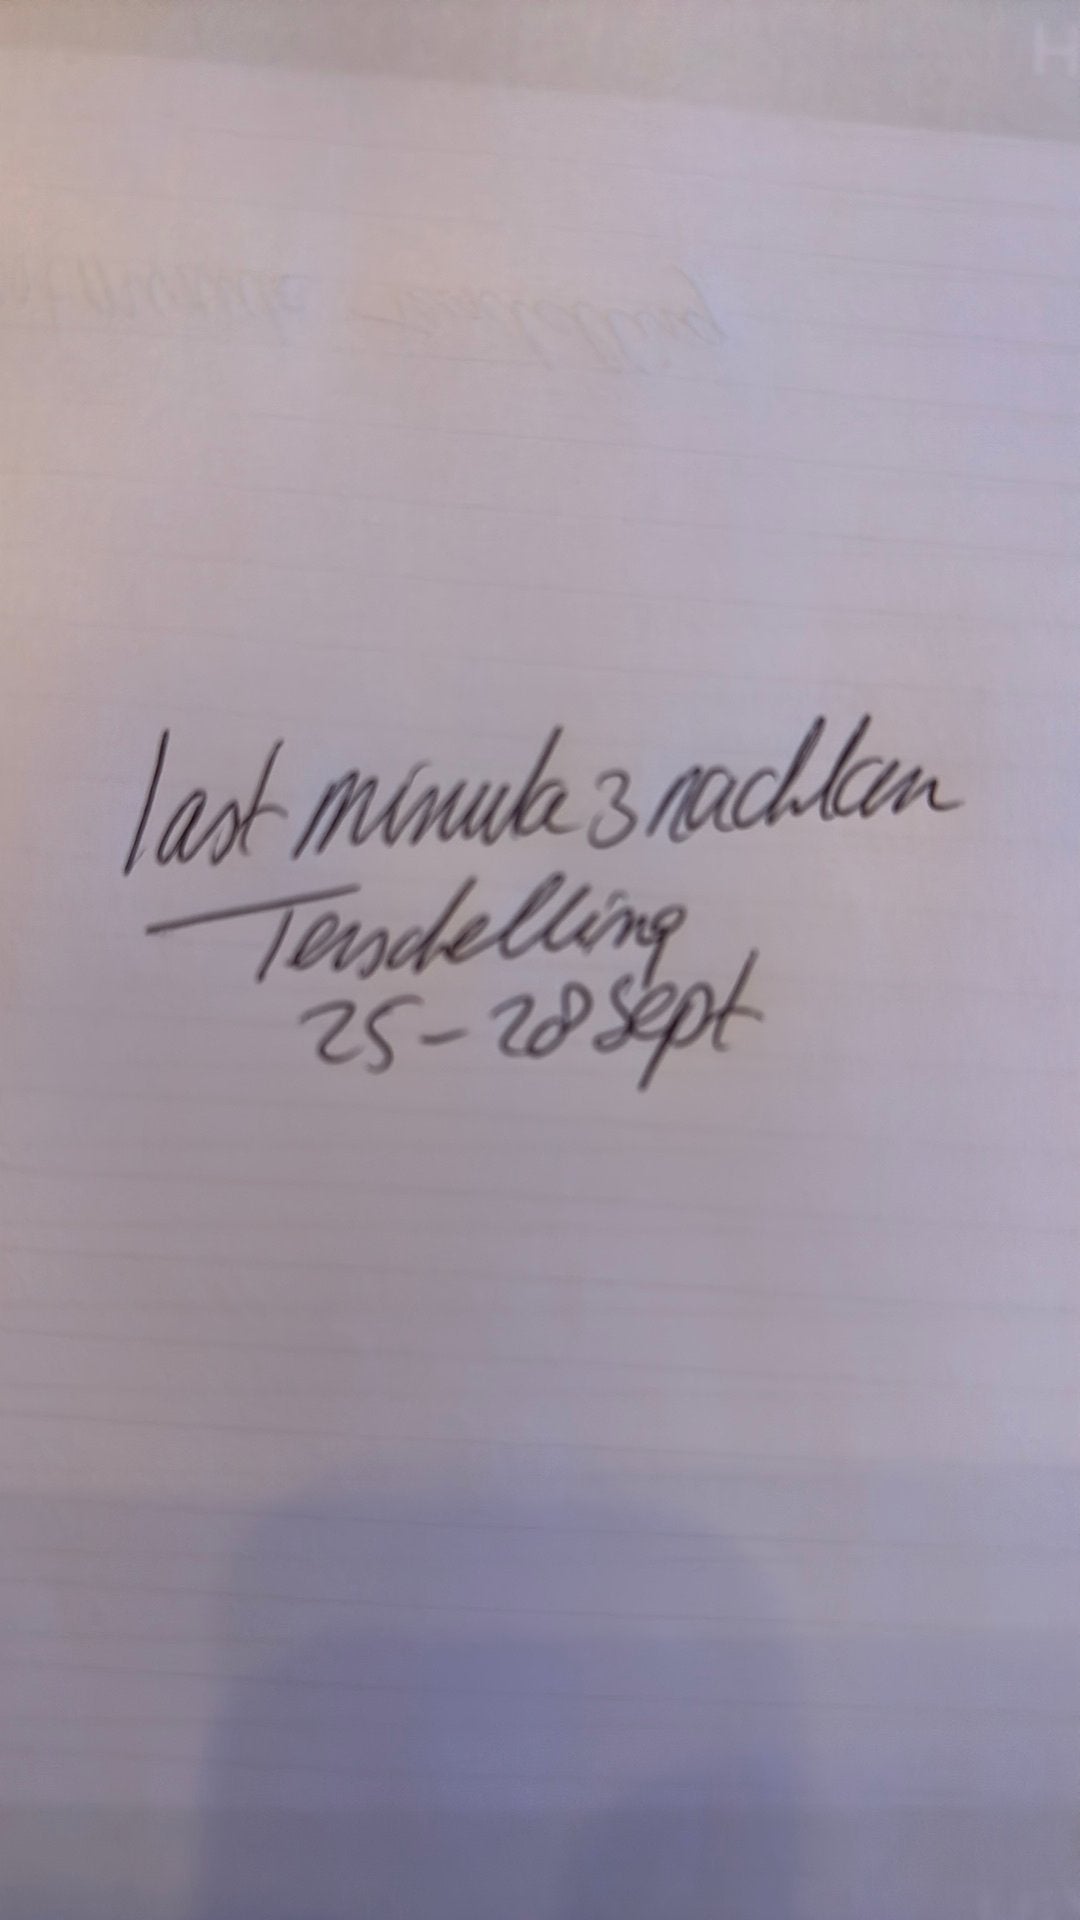 last minute 3 nachten
Terschelling
25 - 28 sept